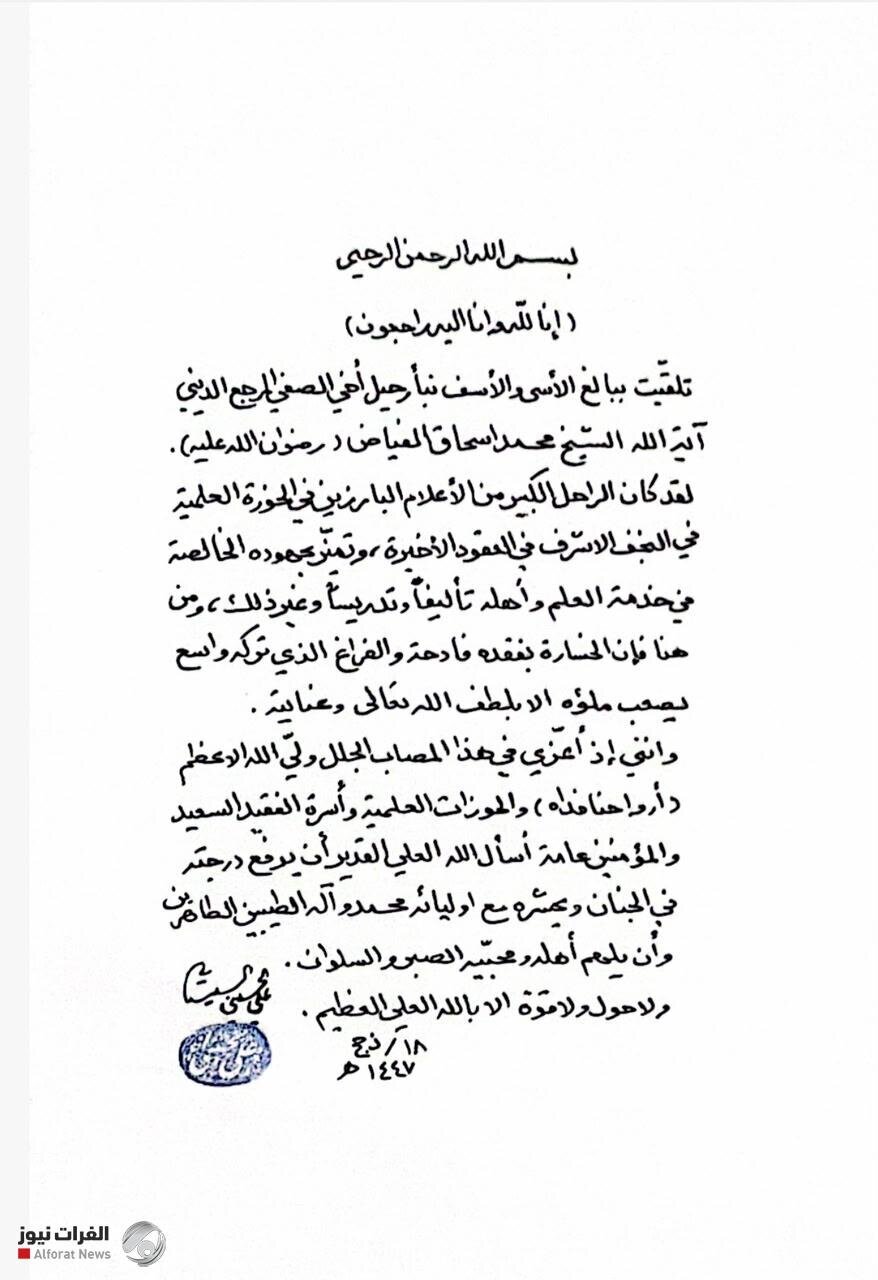 بسم الله الرحمن الرحيم
(إنا لله وانا اليه راجعون)
تلقّيت ببالغ الأسى والأسف نبأ رحيل أخي الصفي المرجع الديني
آية الله الشيخ محمد اسحاق الفياض (رضوان الله عليه).
لقد كان الراحل الكبير من الأعلام البارزين في الحوزة العلمية
في النجف الاشرف في العقود الأخيرة، وتميّز بجهوده الخالصة
في خدمة العلم وأهله تأليفاً وتدريساً وغير ذلك، ومن
هنا فإن الخسارة بفقده فادحة والفراغ الذي تركه واسع
يصعب ملؤه الا بلطف الله تعالى وعناية.
وانني إذ أعزّي في هذا المصاب الجلل وليّ الله الاعظم
(أرواحنا فداه) والحوزات العلمية وأسرة الفقيد السعيد
والمؤمنين عامة أسأل الله العلي القدير أن يرفع درجته
في الجنان ويحشره مع اوليائه محمد وآله الطيبين الطاهرين
وأن يلهم أهله ومحبّيه الصبر والسلوان.
ولا حول ولا قوة الا بالله العلي العظيم.
علي الحسيني السيستاني
١٨/ذج
١٤٤٧ هـ
الفرات نيوز
Alforat News